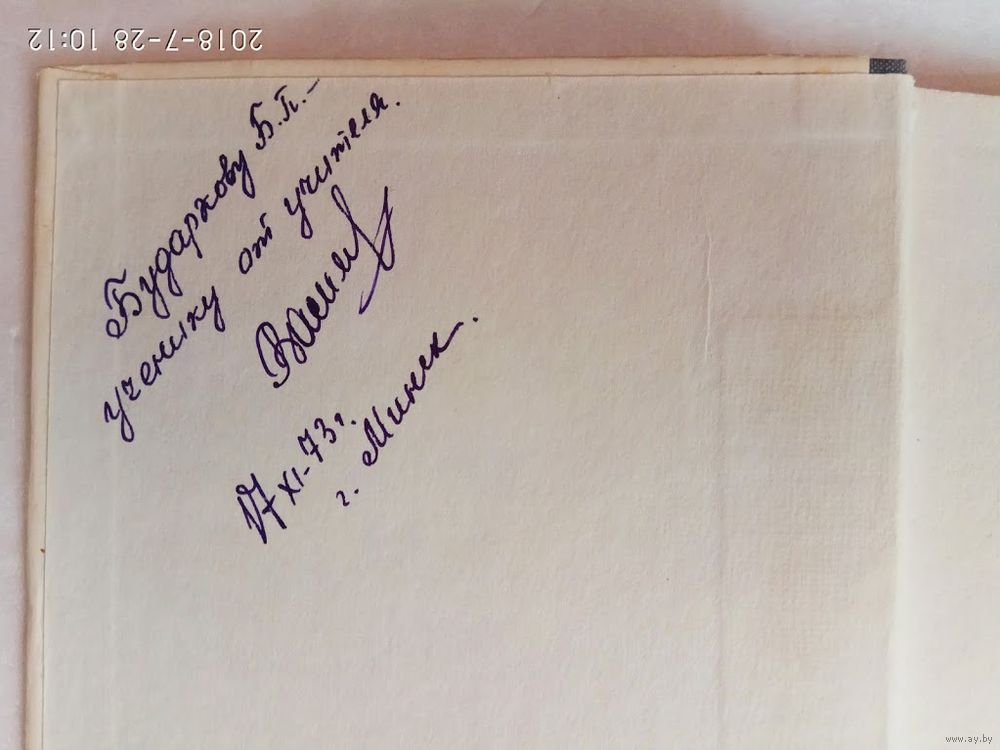 2018-7-28 10:12
Бударкову Б.П. –
ученику от учителя.
17 XI-73 г.
г. Минск.
www.ay.by